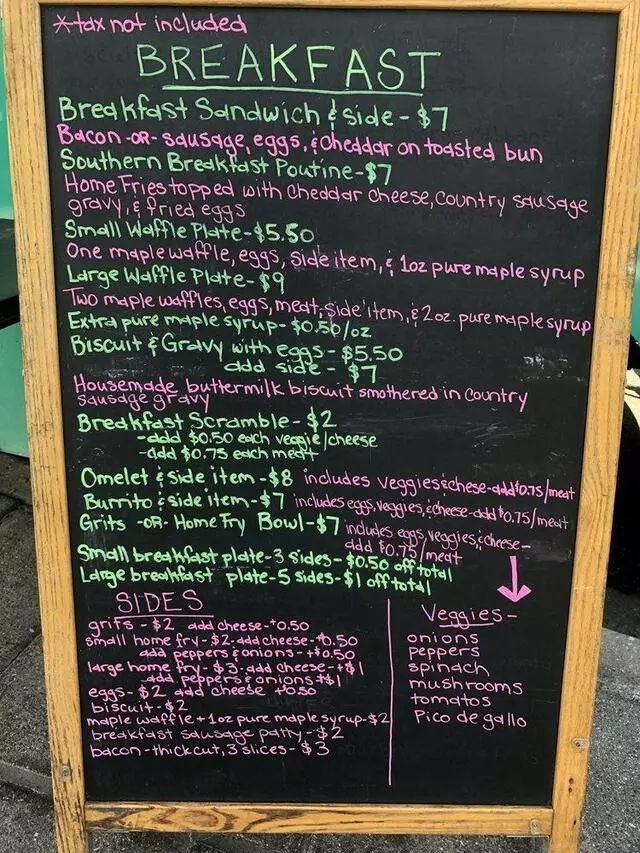 *tax not included
BREAKFAST
Breakfast Sandwich & side - $7
Bacon -OR- sausage, eggs, & cheddar on toasted bun
Southern Breakfast Poutine - $7
Home Fries topped with cheddar cheese, country sausage
gravy, & fried eggs
Small Waffle Plate - $5.50
One maple waffle, eggs, side item, & 1oz pure maple syrup
Large Waffle Plate - $9
Two maple waffles, eggs, meat, side item, & 2oz. pure maple syrup
Extra pure maple syrup - $0.50/oz
Biscuit & Gravy with eggs - $5.50
add side - $7
Housemade buttermilk biscuit smothered in country
sausage gravy
Breakfast Scramble - $2
-add $0.50 each veggie/cheese
-add $0.75 each meat
Omelet & side item - $8 includes veggies & chese - add $0.75/meat
Burrito & side item - $7 includes eggs, veggies, & cheese - add $0.75/meat
Grits -OR- Home Fry Bowl - $7 includes eggs, veggies, & cheese -
add $0.75/meat
Small breakfast plate - 3 sides - $0.50 off total
Large breakfast plate - 5 sides - $1 off total
SIDES
grits - $2 add cheese - +0.50
small home fry - $2 - add cheese - +0.50
add peppers & onions - +$0.50
large home fry - $3 - add cheese - +$1
add peppers & onions +$1
eggs - $2 add cheese +0.50
biscuit - $2
maple waffle + 1oz pure maple syrup - $2
breakfast sausage patty - $2
bacon - thick cut, 3 slices - $3
Veggies -
onions
peppers
spinach
mushrooms
tomatos
Pico de gallo